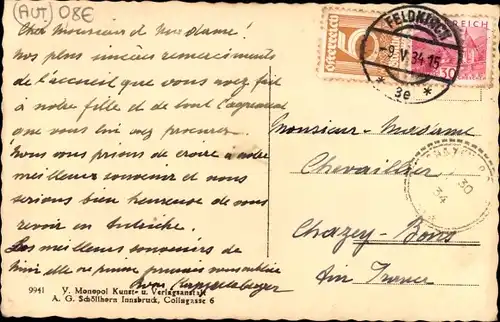 (AUT) 08E
Cher Monsieur et Madame!
nos plus sincères remerciements
de l'accueil que vous avez fait
à notre fille et de tout l'agrément
que vous lui avez procuré.
Nous vous prions de croire à notre
meilleurs souvenir et nous
serions bien heureuse de vous
revoir en Autriche.
Les meilleurs souvenirs de
9941 V. Monopol Kunst- u. Verlagsanstalt
A. G. Schöllhorn Innsbruck, Collngasse 6
ÖSTERREICH
5
REICH
30
FELDKIRCH
-9.V.34.15
* 3e *
Monsieur-Madame
Chevaillier
Chazey-Bons
Ain France
CHAZEY-B
30
34